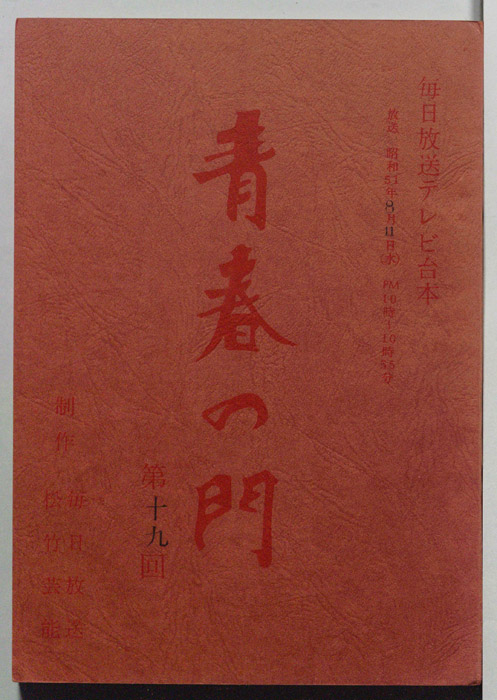 毎日放送テレビ台本
放送 昭和51年8月11日(水) PM10時～10時55分
青春の門
第十九回
制作 毎日放送
松竹芸能